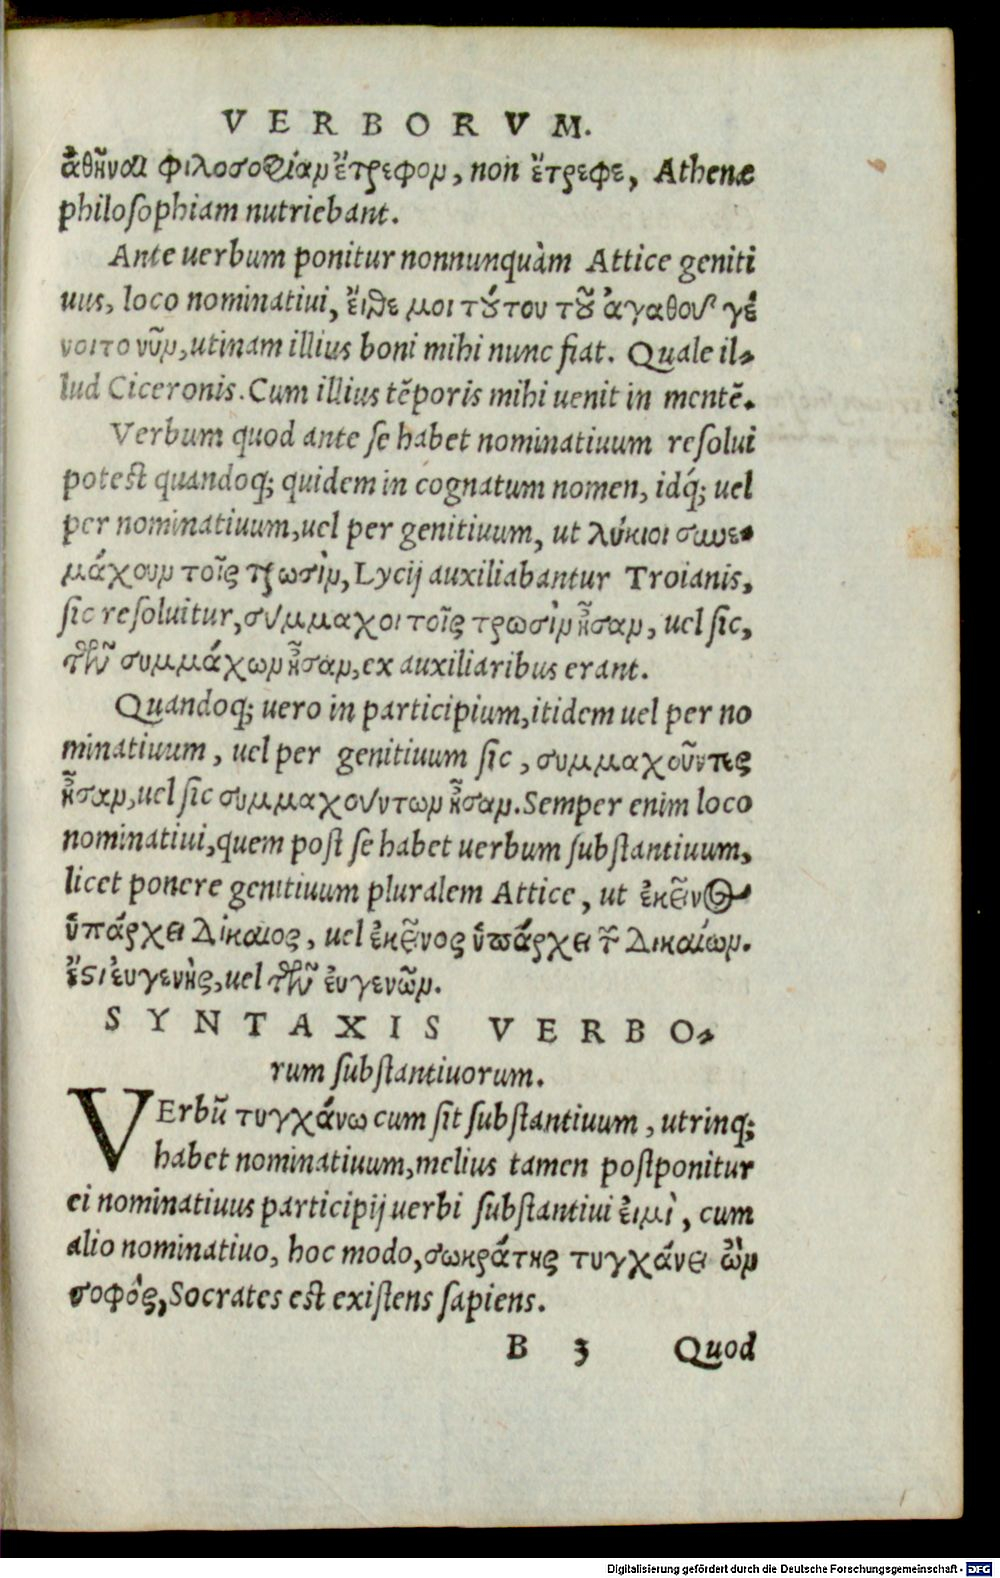 VERBORVM.
ἀθῆναι φιλοσοφίαν ἔτρεφον, non ἔτρεφε, Athenæ
philoſophiam nutriebant.
Ante uerbum ponitur nonnunquàm Attice geniti
uus, loco nominatiui, ἔιθε μοι τούτου τοῦ ἀγαθοῦ γέ
νοιτο νῦν, utinam illius boni mihi nunc fiat. Quale il-
lud Ciceronis. Cum illius tēporis mihi uenit in mentē.
Verbum quod ante ſe habet nominatiuum reſolui
poteſt quandoq; quidem in cognatum nomen, idq́; uel
per nominatiuum, uel per genitiuum, ut λύκιοι συνε-
μάχουν τοῖς τρωσὶν, Lycij auxiliabantur Troianis,
ſic reſoluitur, σύμμαχοι τοῖς τρωσὶν ἦσαν, uel ſic,
τῶν συμμάχων ἦσαν, ex auxiliaribus erant.
Quandoq; uero in participium, itidem uel per no
minatiuum, uel per genitiuum ſic, συμμαχοῦντες
ἦσαν, uel ſic συμμαχούντων ἦσαν. Semper enim loco
nominatiui, quem poſt ſe habet uerbum ſubſtantiuum,
licet ponere genitiuum pluralem Attice, ut ἐκεῖνος
ὑπάρχει δίκαιος, uel ἐκεῖνος ὑπάρχει τῶν δικαίων.
ἔστι ἐυγενὴς, uel τῶν ἐυγενῶν.
SYNTAXIS VERBO-
rum ſubſtantiuorum.
VErbū τυγχάνω cum ſit ſubſtantiuum, utrinq;
habet nominatiuum, melius tamen poſtponitur
ei nominatiuus participij uerbi ſubſtantiui ἐιμὶ, cum
alio nominatiuo, hoc modo, σωκράτης τυγχάνει ὢν
σοφὸς, Socrates eſt exiſtens ſapiens.
B 3 Quod
Digitalisierung gefördert durch die Deutsche Forschungsgemeinschaft - DFG